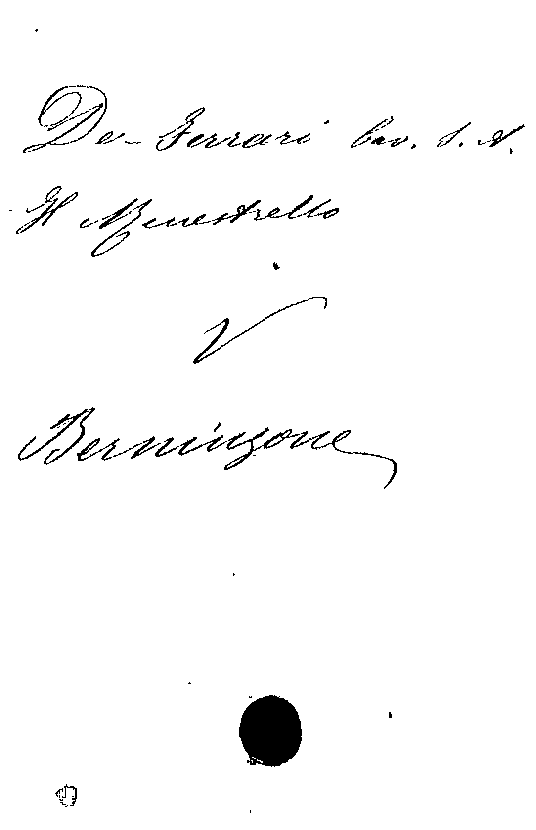 De-Ferrari Cav. S. A.
Il Menestrello
V
Berninzone